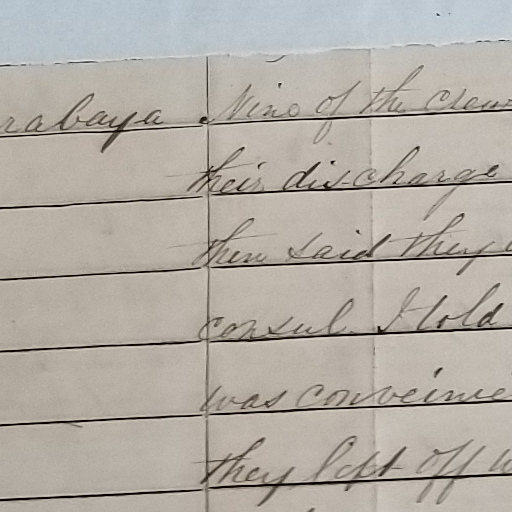 rabaya Nine of the crew
their discharge
then said they
consul. I told
was conveinie
they left off w